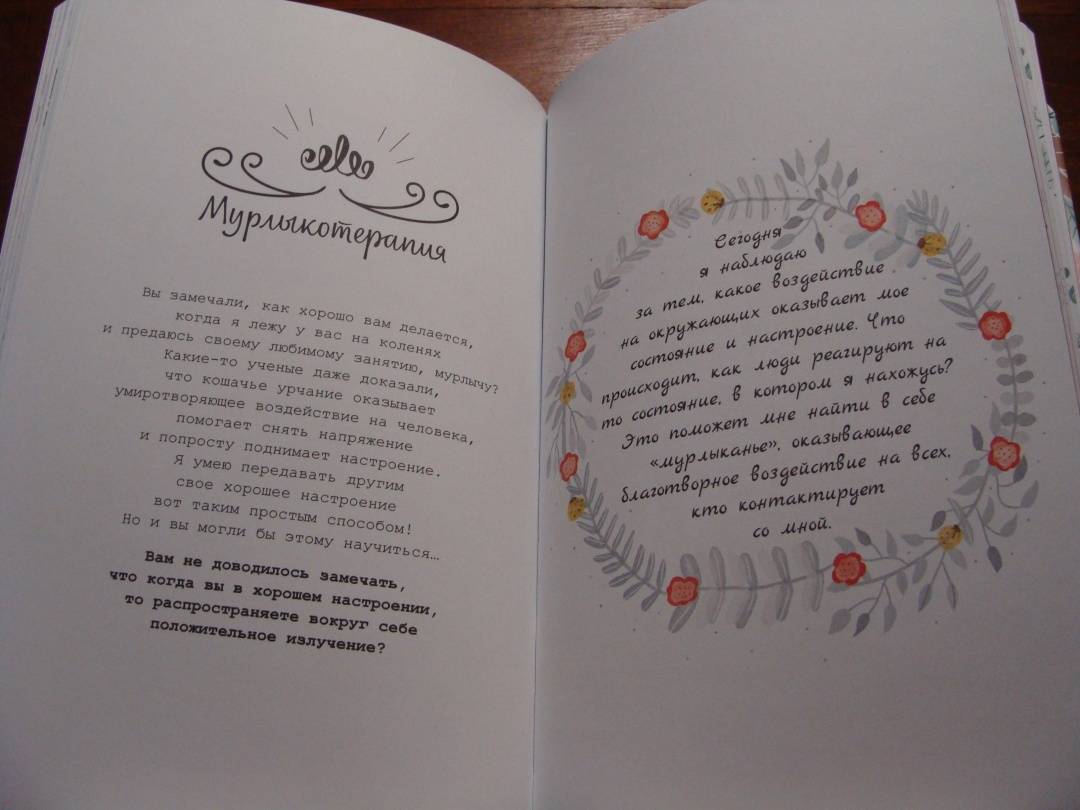 Мурлыкотерапия
Вы замечали, как хорошо вам делается,
когда я лежу у вас на коленях
и предаюсь своему любимому занятию, мурлычу?
Какие-то ученые даже доказали,
что кошачье урчание оказывает
умиротворяющее воздействие на человека,
помогает снять напряжение
и попросту поднимает настроение.
Я умею передавать другим
свое хорошее настроение
вот таким простым способом!
Но и вы могли бы этому научиться…
Вам не доводилось замечать,
что когда вы в хорошем настроении,
то распространяете вокруг себя
положительное излучение?
Сегодня
я наблюдаю
за тем, какое воздействие
на окружающих оказывает мое
состояние и настроение. Что
происходит, как люди реагируют на
то состояние, в котором я нахожусь?
Это поможет мне найти в себе
«мурлыканье», оказывающее
благотворное воздействие на всех,
кто контактирует
со мной.